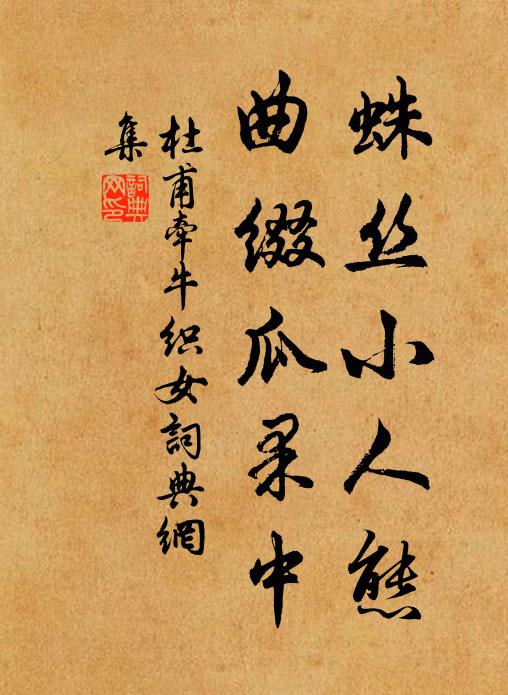 蛛丝小人態
曲缀瓜果中
杜甫牵牛织女詞典網
集
詞典网印